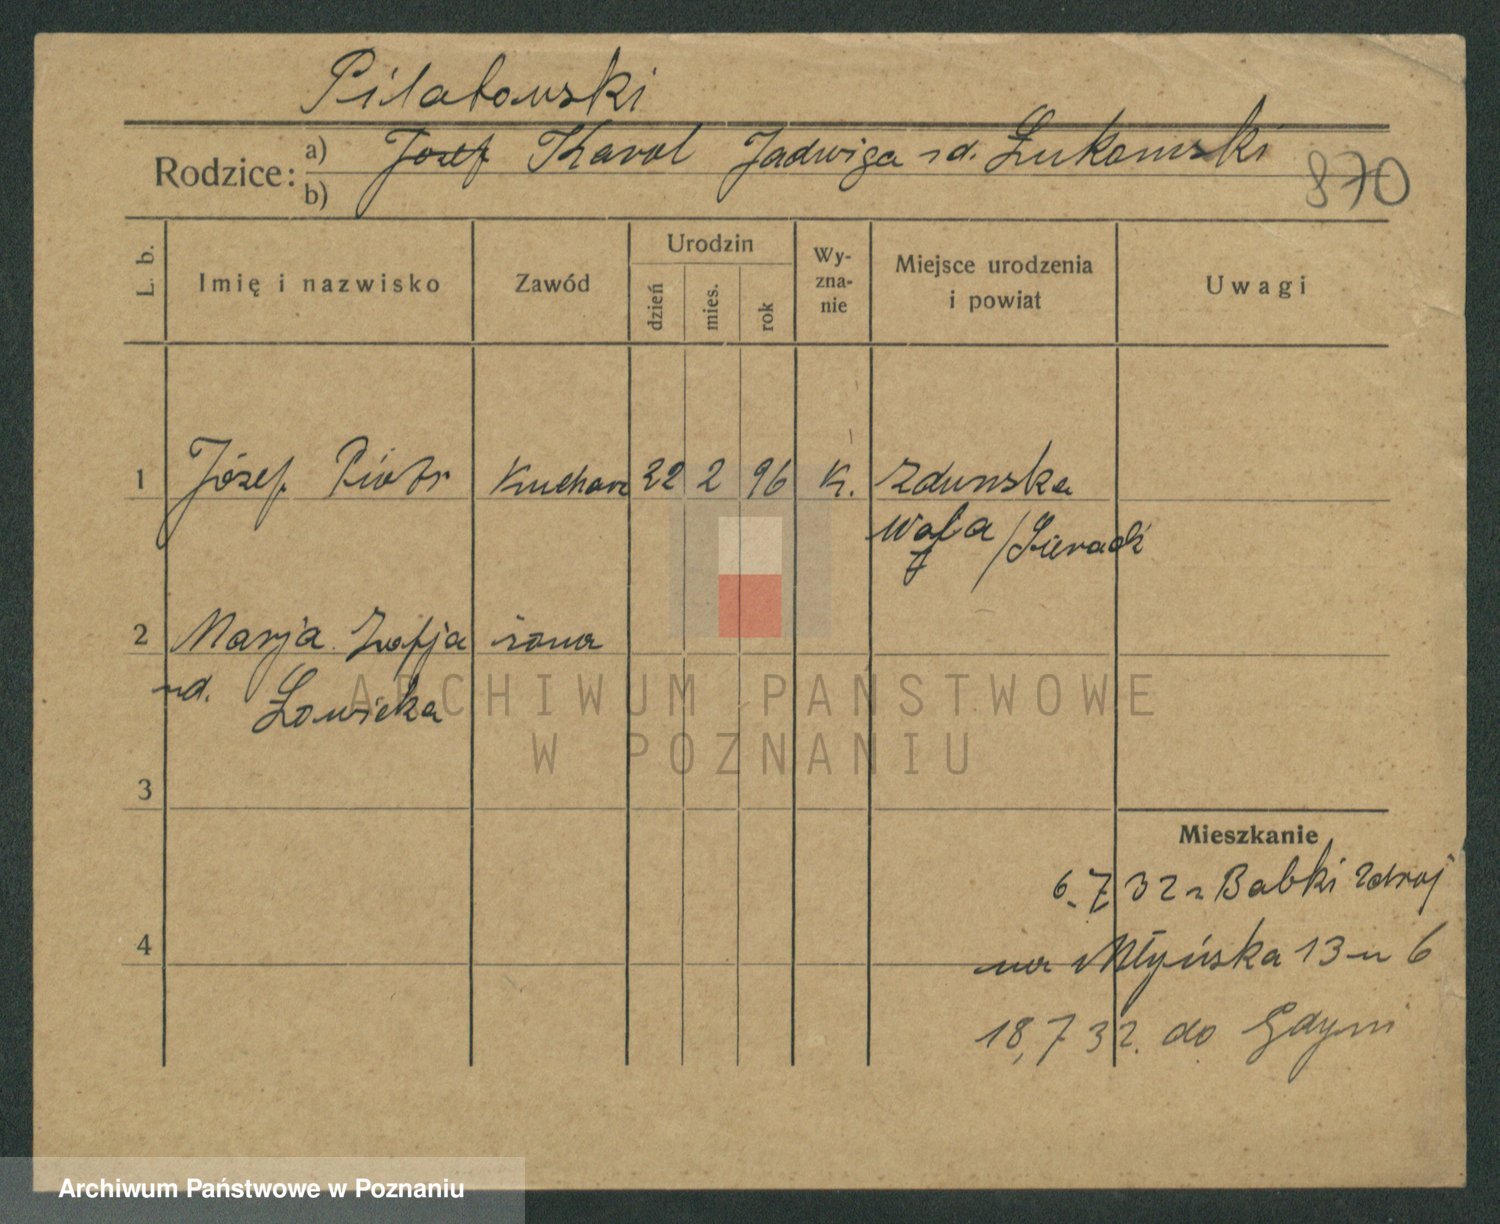 Pilatowski
Rodzice: a) Józef Karol Jadwiga rd. Łukomski
b)
870
L. b.
Imię i nazwisko
Zawód
Urodzin
dzień
mies.
rok
Wy-
zna-
nie
Miejsce urodzenia
i powiat
Uwagi
1 Józef Piotr Kucharz 22 2 96 K. Zdunska
Wola / Sieradź
2 Marja Zofja żona
rd. Łowicka
3
Mieszkanie
6.7 32 z Babki Zdroj
4 na Młyńska 13 6
18,7 32. do Gdyni
ARCHIWUM PAŃSTWOWE
W POZNANIU
Archiwum Państwowe w Poznaniu